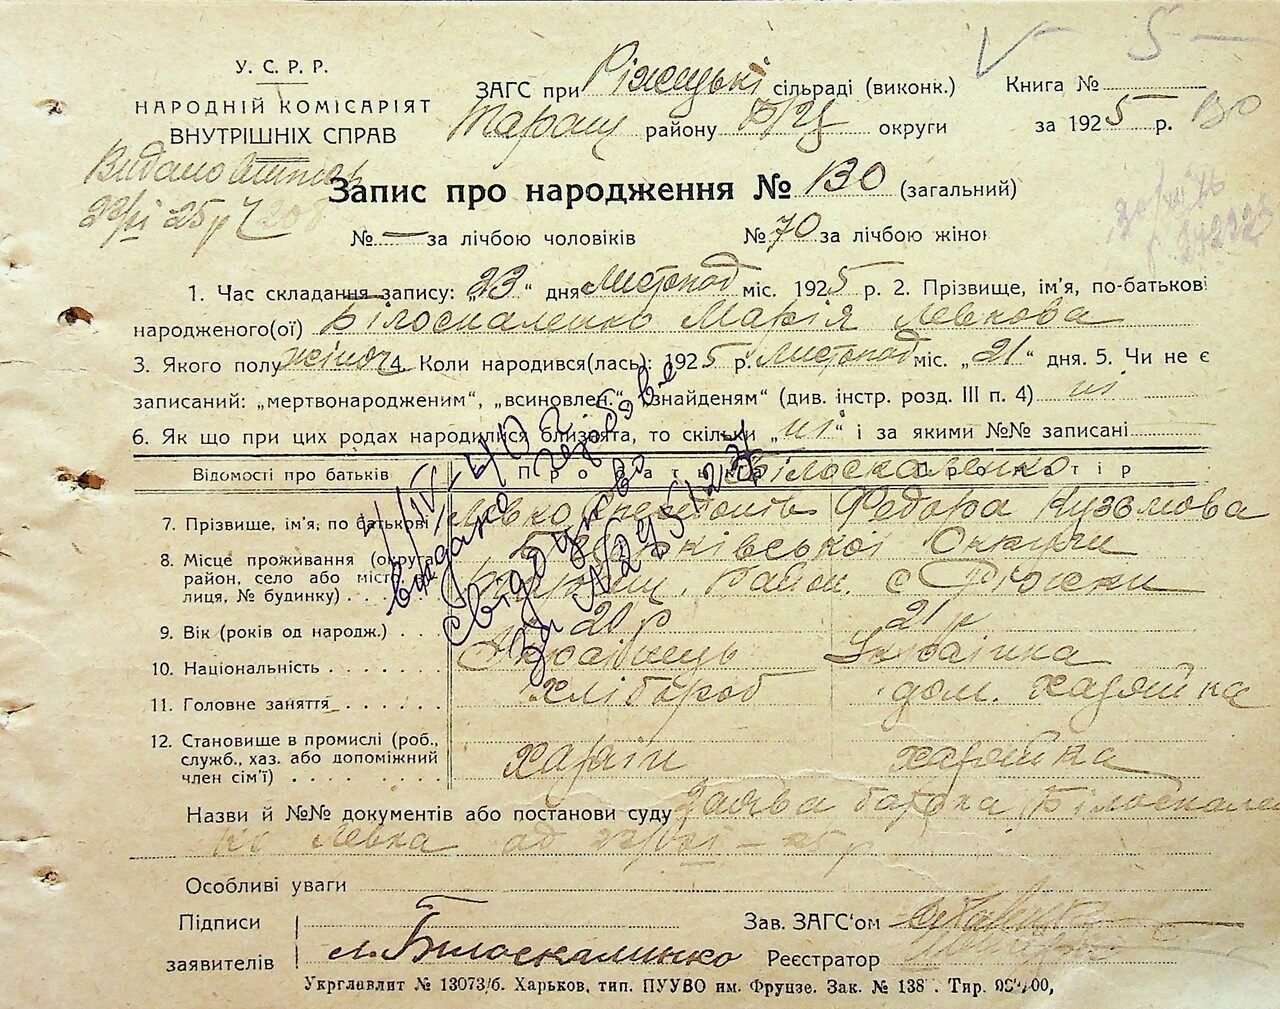 У. С. Р. Р.
НАРОДНІЙ КОМІСАРІЯТ
ВНУТРІШНІХ СПРАВ
V — 5 —
ЗАГС при сільраді (виконк.)
Таращ району Б/Ц округи
Книга №
за 1925 р. 130
Видано
25 р
Запис про народження № 130 (загальний)
№ — за лічбою чоловіків № 70 за лічбою жінок
1. Час складання запису: „23“ дня Листопад міс. 1925 р. 2. Прізвище, ім'я, по-батькові
народженого(ої) Білоскаленко Марія Левкова
3. Якого полу жіноч 4. Коли народився(лась): 1925 р. Листопад міс. „21“ дня. 5. Чи не є
записаний: „мертвонародженим“, „всиновлен.“, „знайденям“ (див. інстр. розд. III п. 4) ні
6. Як що при цих родах народилися близнята, то скільки „ні“ і за якими №№ записані
Відомості про батьків Білоскаленко
7. Прізвище, ім'я, по батькові Левко Федора Кузьмова
8. Місце проживання (округа, район, село або місто, вулиця, № будинку) Округи
Район. с
9. Вік (років од народж.) 20 р 21 р
10. Національність Українець Українка
11. Головне заняття хлібороб дом. хазяйка
12. Становище в промислі (роб., служб., хаз. або допоміжний член сім'ї) хазяїн хазяйка
видано
свідоцтво
за №
Назви й №№ документів або постанови суду Заява батька Білоскален
ко Левка од 25 р
Особливі уваги
Підписи
заявителів Л. Білоскалинко
Зав. ЗАГС'ом
Реєстратор
Укрглавлит № 13073/б. Харьков, тип. ПУУВО им. Фрунзе. Зак. № 138 . Тир.